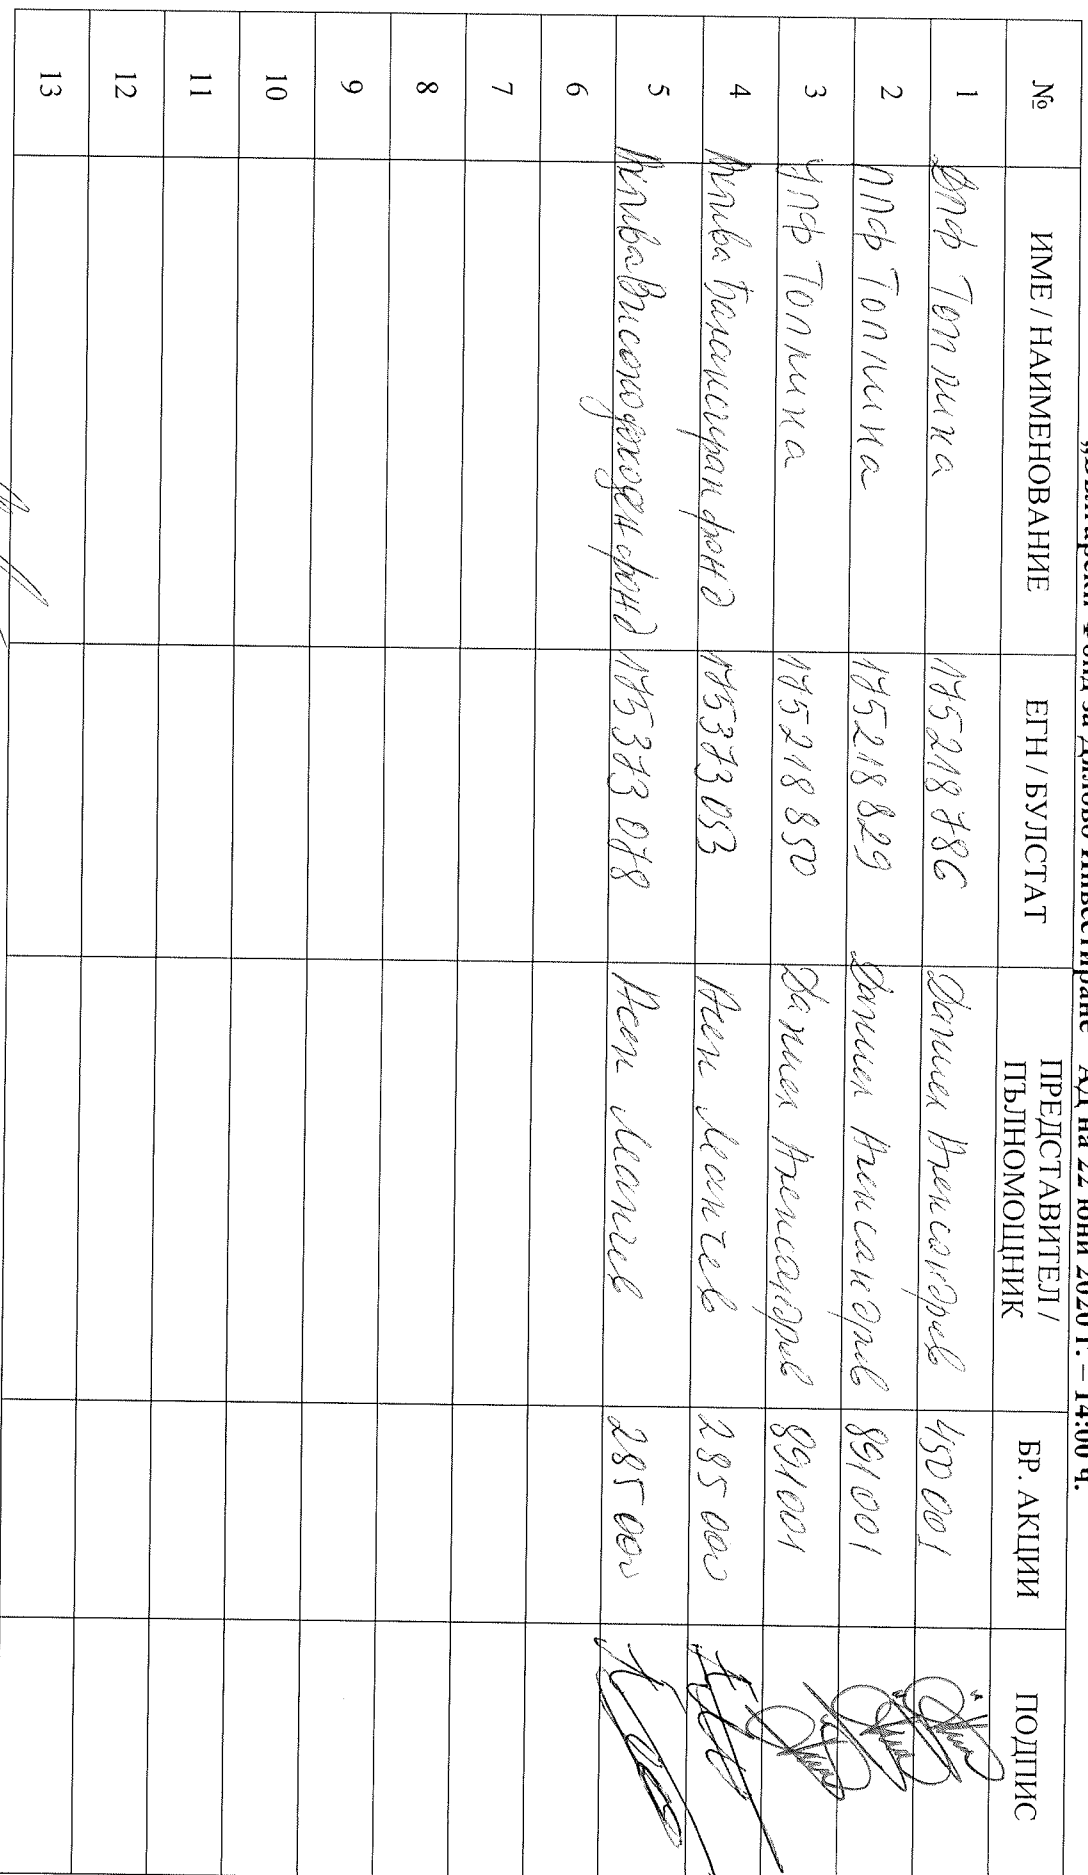 „Български Фонд за Дялово Инвестиране“ АД на 22 юни 2020 г. – 14:00 ч.
№ ИМЕ / НАИМЕНОВАНИЕ ЕГН / БУЛСТАТ ПРЕДСТАВИТЕЛ / ПЪЛНОМОЩНИК БР. АКЦИИ ПОДПИС
1 ДПФ Топлина 175218786 Даниел Александров 450 001
2 ППФ Топлина 175218829 Даниел Александров 891 001
3 УПФ Топлина 175218850 Даниел Александров 891001
4 Балансиран фонд 175373053 Асен 285 000
5 Високодоходен фонд 175373078 Асен 285 000
6
7
8
9
10
11
12
13